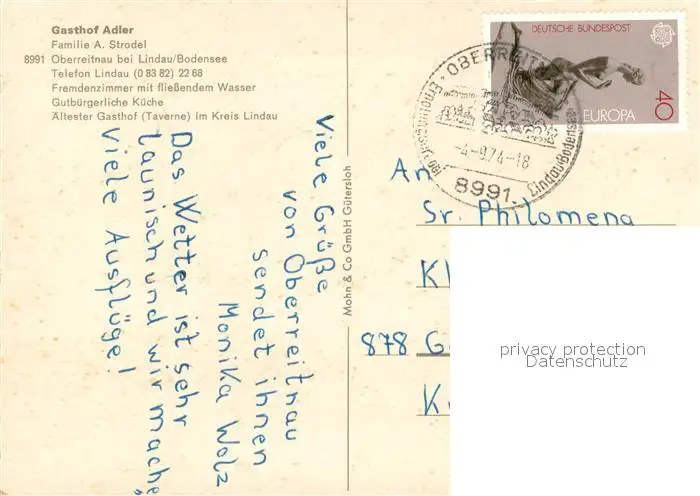 Gasthof Adler
Familie A. Strodel
8991 Oberreitnau bei Lindau/Bodensee
Telefon Lindau (0 83 82) 22 68
Fremdenzimmer mit fließendem Wasser
Gutbürgerliche Küche
Ältester Gasthof (Taverne) im Kreis Lindau
Viele Grüße
von Oberreitnau
sendet ihnen
Monika Walz
Das Wetter ist sehr
launisch und wir mache
viele Ausflüge!
Mohn & Co GmbH Gütersloh
DEUTSCHE BUNDESPOST
EUROPA
40
OBERREIT
-4.-9.74-18
8991
Lindau/Bodensee
An
Sr. Philomena
Kl
878 Ge
K
privacy protection
Datenschutz